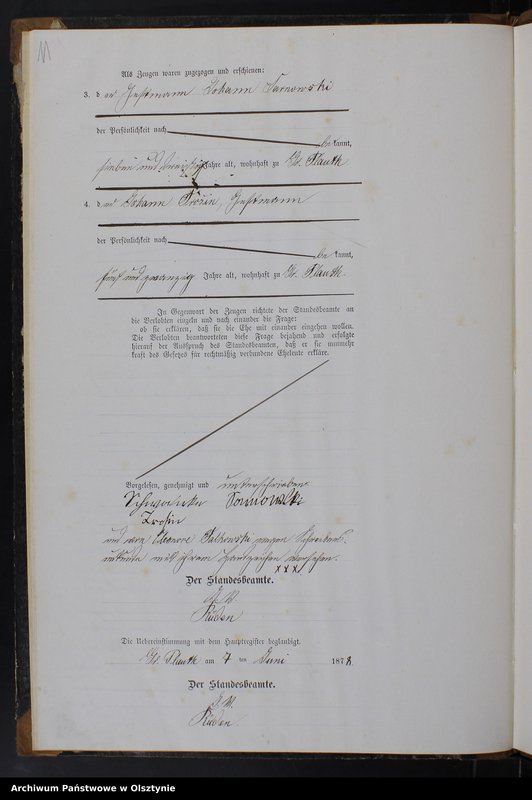 11
Als Zeugen waren zugezogen und erschienen:
3. d er Instmann Johann Sarnowski
der Persönlichkeit nach be kannt,
sieben und dreißig Jahre alt, wohnhaft zu Gr. Plauth
4. d er Johann Trosin, Instmann
der Persönlichkeit nach be kannt,
fünf und zwanzig Jahre alt, wohnhaft zu Gr. Plauth
In Gegenwart der Zeugen richtete der Standesbeamte an
die Verlobten einzeln und nach einander die Frage:
ob sie erklären, daß sie die Ehe mit einander eingehen wollen.
Die Verlobten beantworteten diese Frage bejahend und erfolgte
hierauf der Ausspruch des Standesbeamten, daß er sie nunmehr
kraft des Gesetzes für rechtmäßig verbundene Eheleute erkläre.
Vorgelesen, genehmigt und unterschrieben:
Sarnowski
Trosin
und von Eleonore wegen Schreibens-
unkunde mit ihrem Handzeichen versehen.
xxx
Der Standesbeamte.
J. V.
Die Uebereinstimmung mit dem Hauptregister beglaubigt.
Gr. Plauth am 7 ten Juni 1878.
Der Standesbeamte.
J. V.
Archiwum Państwowe w Olsztynie